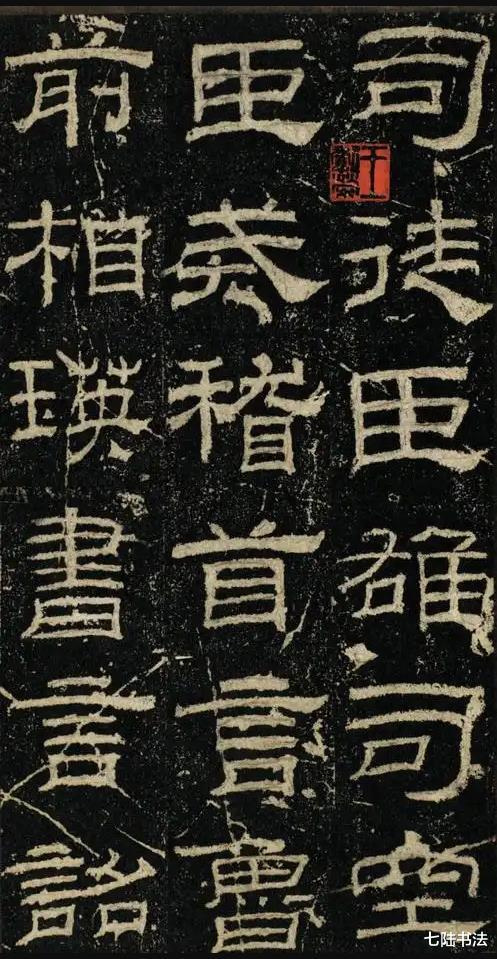 司徒臣雄司空
臣戒稽首言魯
前相瑛書言詔
七陆书法